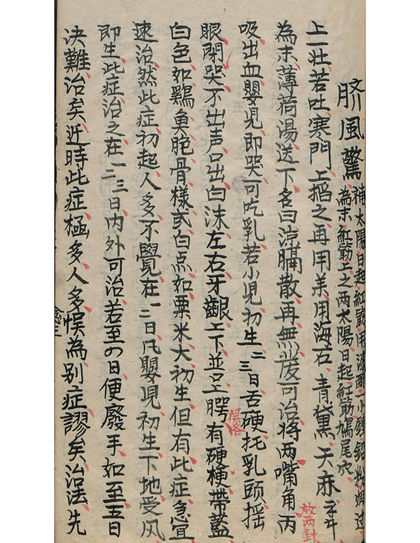 臍風驚
為末紅筋上之两太陽日起紅筋鳩尾穴
上一壮若吐寒門上搯之再用羔用海石青黛天麻
為末薄荷湯送下名曰膈散再無可治將两嘴角丙
放两針
吸出血嬰児即哭可吃乳若小児初生一二三日舌硬托乳頭揺
眼閉哭不出声口出白沫左右牙齦上下並腭有硬梗帯藍
白色如鷄魚胞骨様或白点如粟米大初生但有此症急宜
速治然此症初起人多不覺在一二日凡嬰児初生下地受风
即生此症治之在一二三日内外可治若至四日便廢手如至五日
决難治矣近時此症極多人多悮為别症謬矣治法先